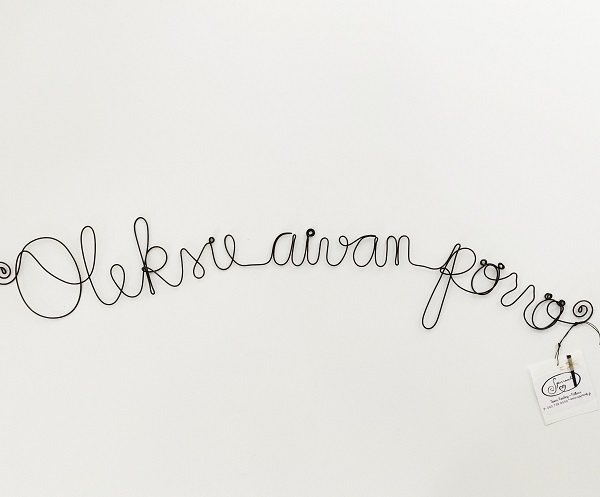 Oleksie aivan pörrö